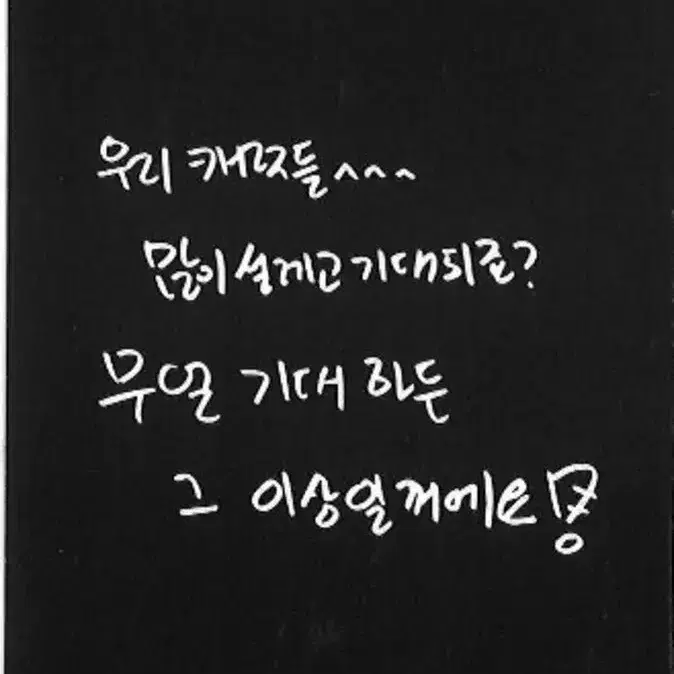 우리 캐럿들^^^
많이 설레고 기대되죠?
무얼 기대 하든
그 이상일꺼에요